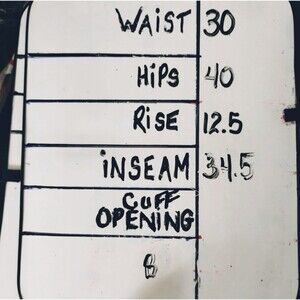 WAIST 30
HiPS 40
RiSE 12.5
iNSEAM 34.5
CUFF
OPENING
8